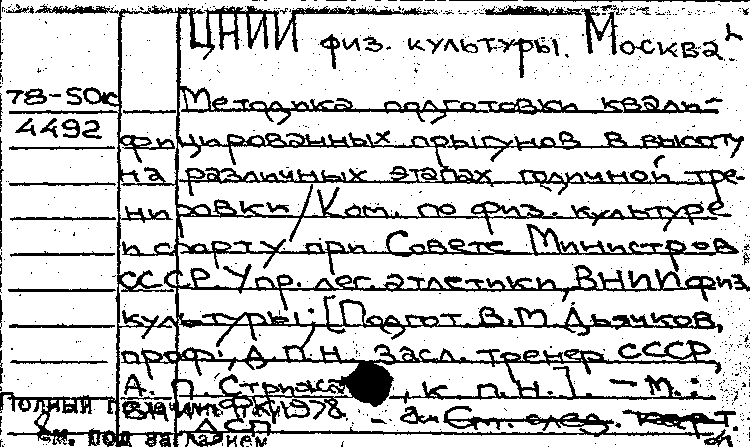 ЦНИИ физ. культуры. Москва.
78-50к Методика подготовкиквали-
4492 фицированных прыгунов в высоту
на различных этапах годичной тре-
нировки / Ком. по физ. культуре
и спорту при Совете Министров
СССР. Упр. лег. атлетики, ВНИИ физ.
культуры; [Подгот. В.М. Дьячков,
проф., д.п.н. засл. тренер СССР,
А. П. Стрижак, к. п. н.]. - М.:
Полный 1978. - См. след. карт.
см. под заглавием